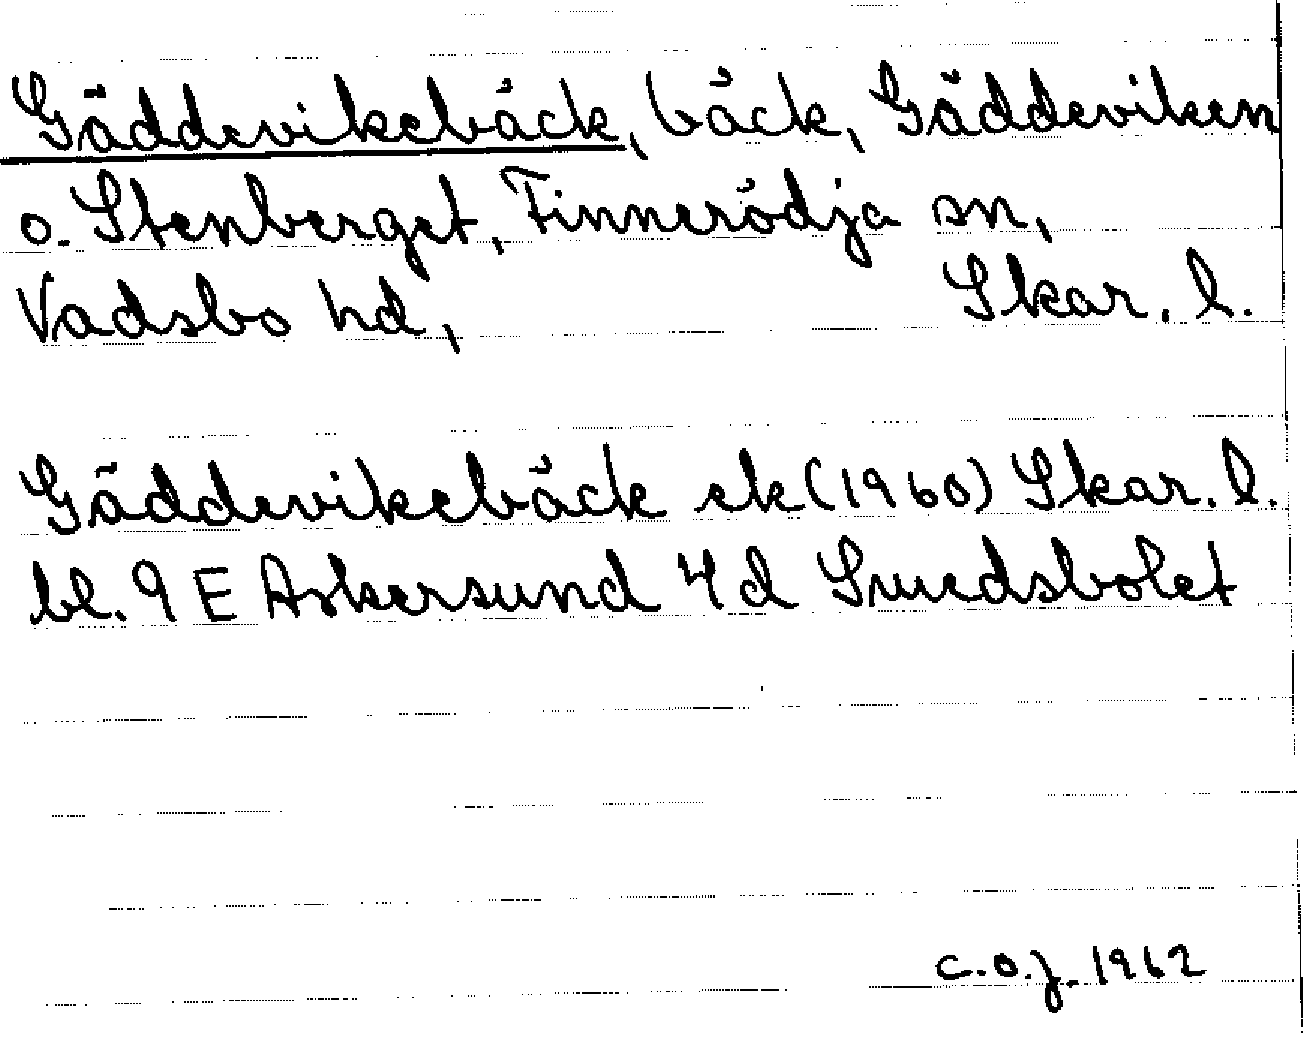 Gäddevikebäck, bäck, Gäddeviken
o. Stenberget, Finnerödja sn,
Vadsbo hd, Skar. l.
Gäddevikebäck ek (1960) Skar. l.
bl. 9 E Askersund 4d Smedsbolet
C.O.J. 1962